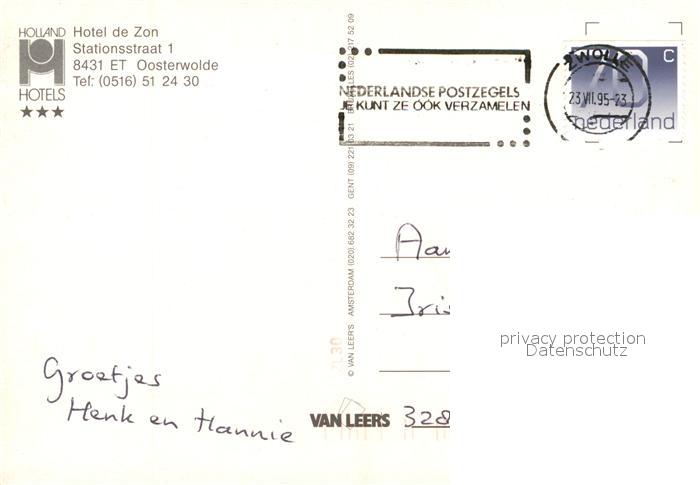 HOLLAND
HOTELS
Hotel de Zon
Stationsstraat 1
8431 ET Oosterwolde
Tel: (0516) 51 24 30
NEDERLANDSE POSTZEGELS
JE KUNT ZE ÓÓK VERZAMELEN
ZWOLLE
23.VII.95-23
70 C
nederland
© VAN LEER'S AMSTERDAM (020) 682 32 23 GENT (09) 221 63 21
Aan
Iris
328
privacy protection
Datenschutz
Groetjes
Henk en Hannie
VAN LEER'S